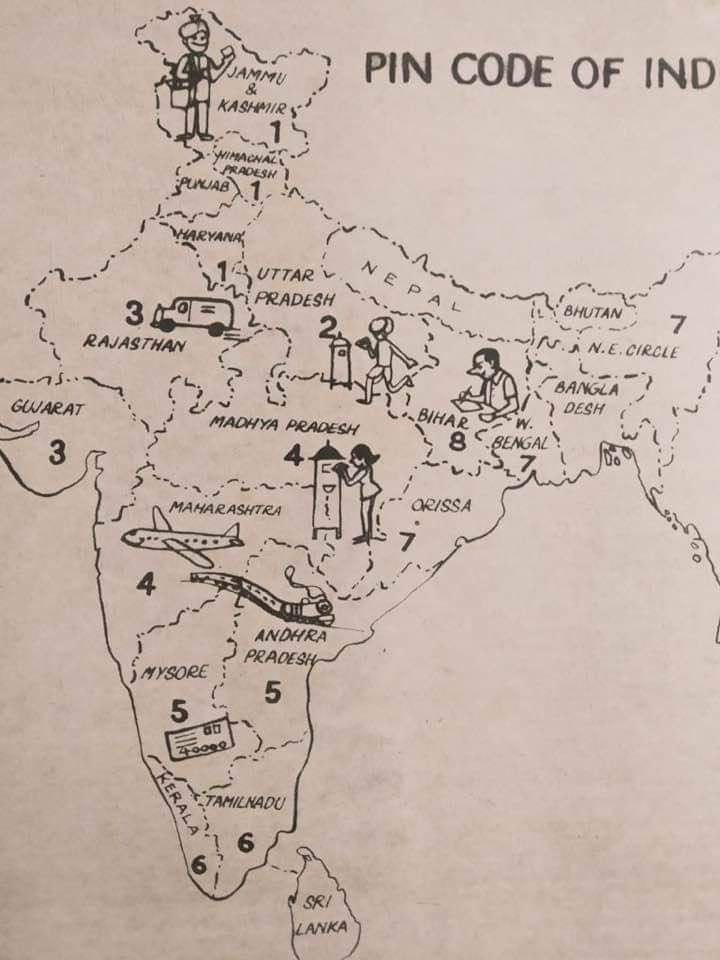 PIN CODE OF IND
JAMMU
&
KASHMIR
1
HIMACHAL
PRADESH
PUNJAB 1
HARYANA
1 UTTAR
PRADESH
NEPAL
3
RAJASTHAN
2
BHUTAN
7
N.E.CIRCLE
BANGLA
DESH
GUJARAT
3
MADHYA PRADESH
4
BIHAR
8
W.
BENGAL
7
MAHARASHTRA
4
ORISSA
7
ANDHRA
PRADESH
5
MYSORE
5
KERALA
6
TAMILNADU
6
SRI
LANKA